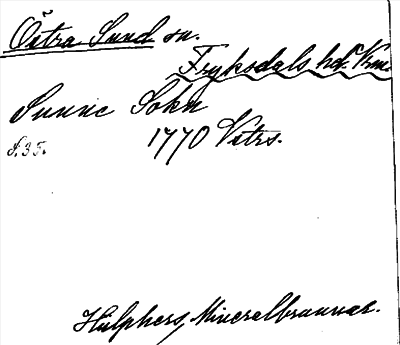 Östra Sund sn.
Fryksdals hd. Vrm.
Sunne Sokn
1770 Vstrs.
s. 35.
Hülphers, Mineralbrunnar.